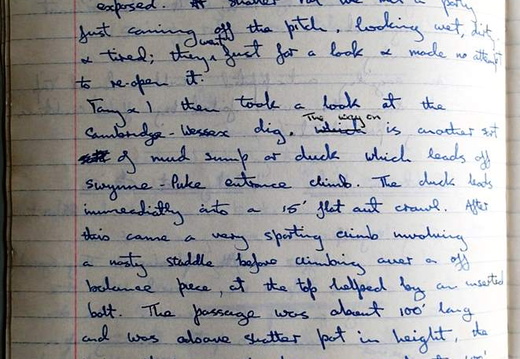 exposed. shatter we met a party
just coming off the pitch, looking wet, dirty
& tired; they went just for a look & made no attempt
to re-open it.
Tony & I then took a look at the
Cambridge-Wessex dig. The way on which is another sort
of mud sump or duck which leads off
swynne-Puke entrance climb. The duck leads
immediatly into a 15' flat out crawl. After
this came a very sporting climb involving
a nasty staddle before climbing over a off
balance piece, at the top helped by an inserted
bolt. The passage was about 100' long
and was above shatter pot in height, the